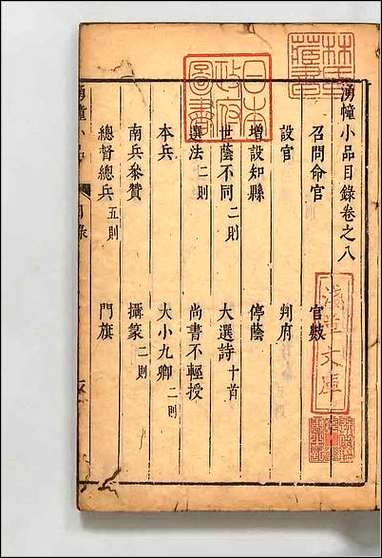 湧幢小品目錄卷之八
召問命官 官數
設官 判府
增設知縣 停蔭
世蔭不同二則 大選詩十首
選法二則 尚書不輕授
本兵 大小九卿二則
南兵參贊 攝篆二則
總督總兵五則 門旗
湧幢小品 目錄
日本
政府
圖書
淺草文庫